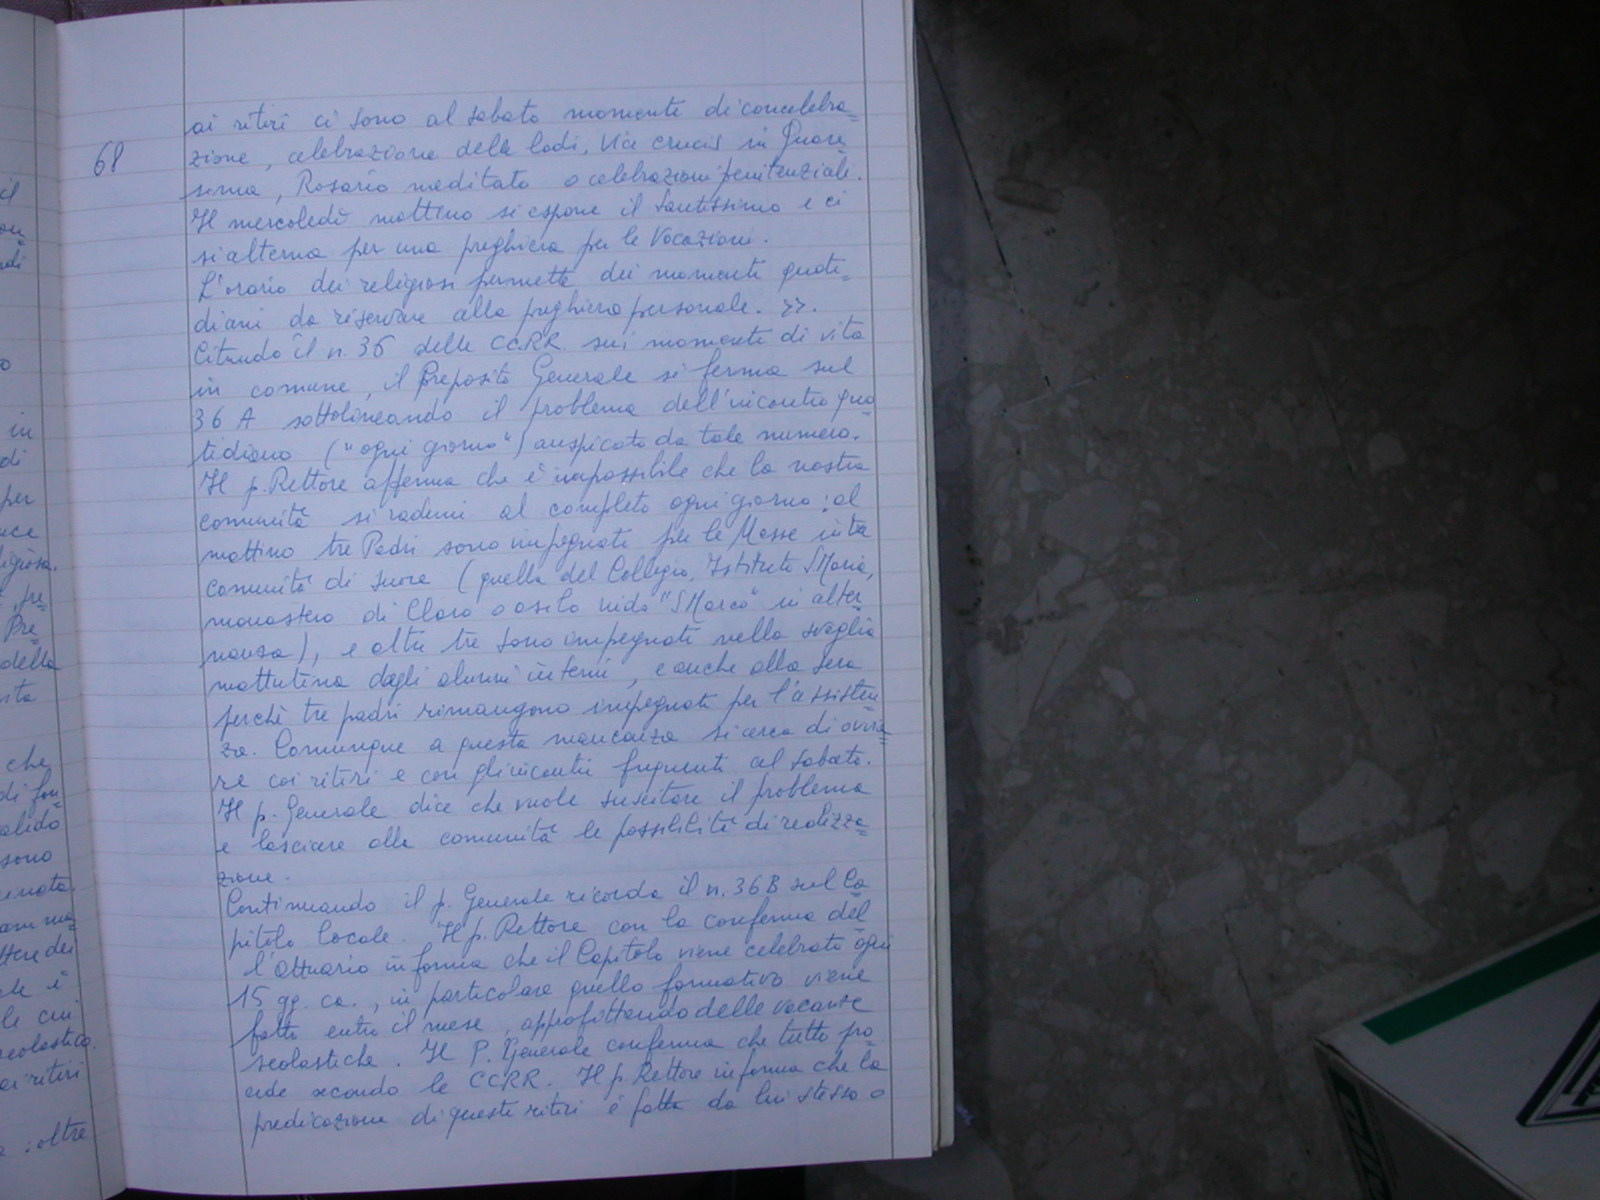 68
ai ritiri ci sono al sabato momenti di concelebra=
zione, celebrazione delle lodi, Via crucis in Quare=
sima, Rosario meditato o celebrazioni penitenziali.
Il mercoledì mattino si espone il Santissimo e ci
si alterna per una preghiera per le Vocazioni.
L'orario dei religiosi permette dei momenti quoti=
diani da riservare alla preghiera personale. >>.
Citando il n. 36 delle CCRR. sui momenti di vita
in comune, il Preposito Generale si ferma sul
36 A sottolineando il problema dell'incontro quo
tidiano ("ogni giorno") auspicato da tale numero.
Il p. Rettore afferma che è impossibile che la nostra
comunità si raduni al completo ogni giorno: al
mattino tre Padri sono impegnati per le Messe in tre
comunità di suore (quella del Collegio, Istituto S Maria,
monastero di Claro o asilo nido "S Marco" in alter=
nanza), e altri tre sono impegnati nella sveglia
mattutina degli alunni interni, e anche alla sera
perchè tre padri rimangono impegnati per l'assisten=
za. Comunque a questa mancanza si cerca di ovvia=
re coi ritiri e con gli incontri frequenti al sabato.
Il p. Generale dice che vuole suscitare il problema
e lasciare alla comunità le possibilità di realizza=
zione.
Continuando il p. Generale ricorda il n. 36B sul Ca=
pitolo locale. Il p. Rettore con la conferma del
l'Attuario informa che il Capitolo viene celebrato ogni
15 gg. ca., in particolare quello formativo viene
fatto entro il mese, approfittando delle vacanze
scolastiche. Il P. Generale conferma che tutto pro=
cede secondo le CCRR. Il p. Rettore informa che la
predicazione di questi ritiri è fatta da lui stesso o
il
in
di
per
della
che
sono
ai ritiri
: oltre